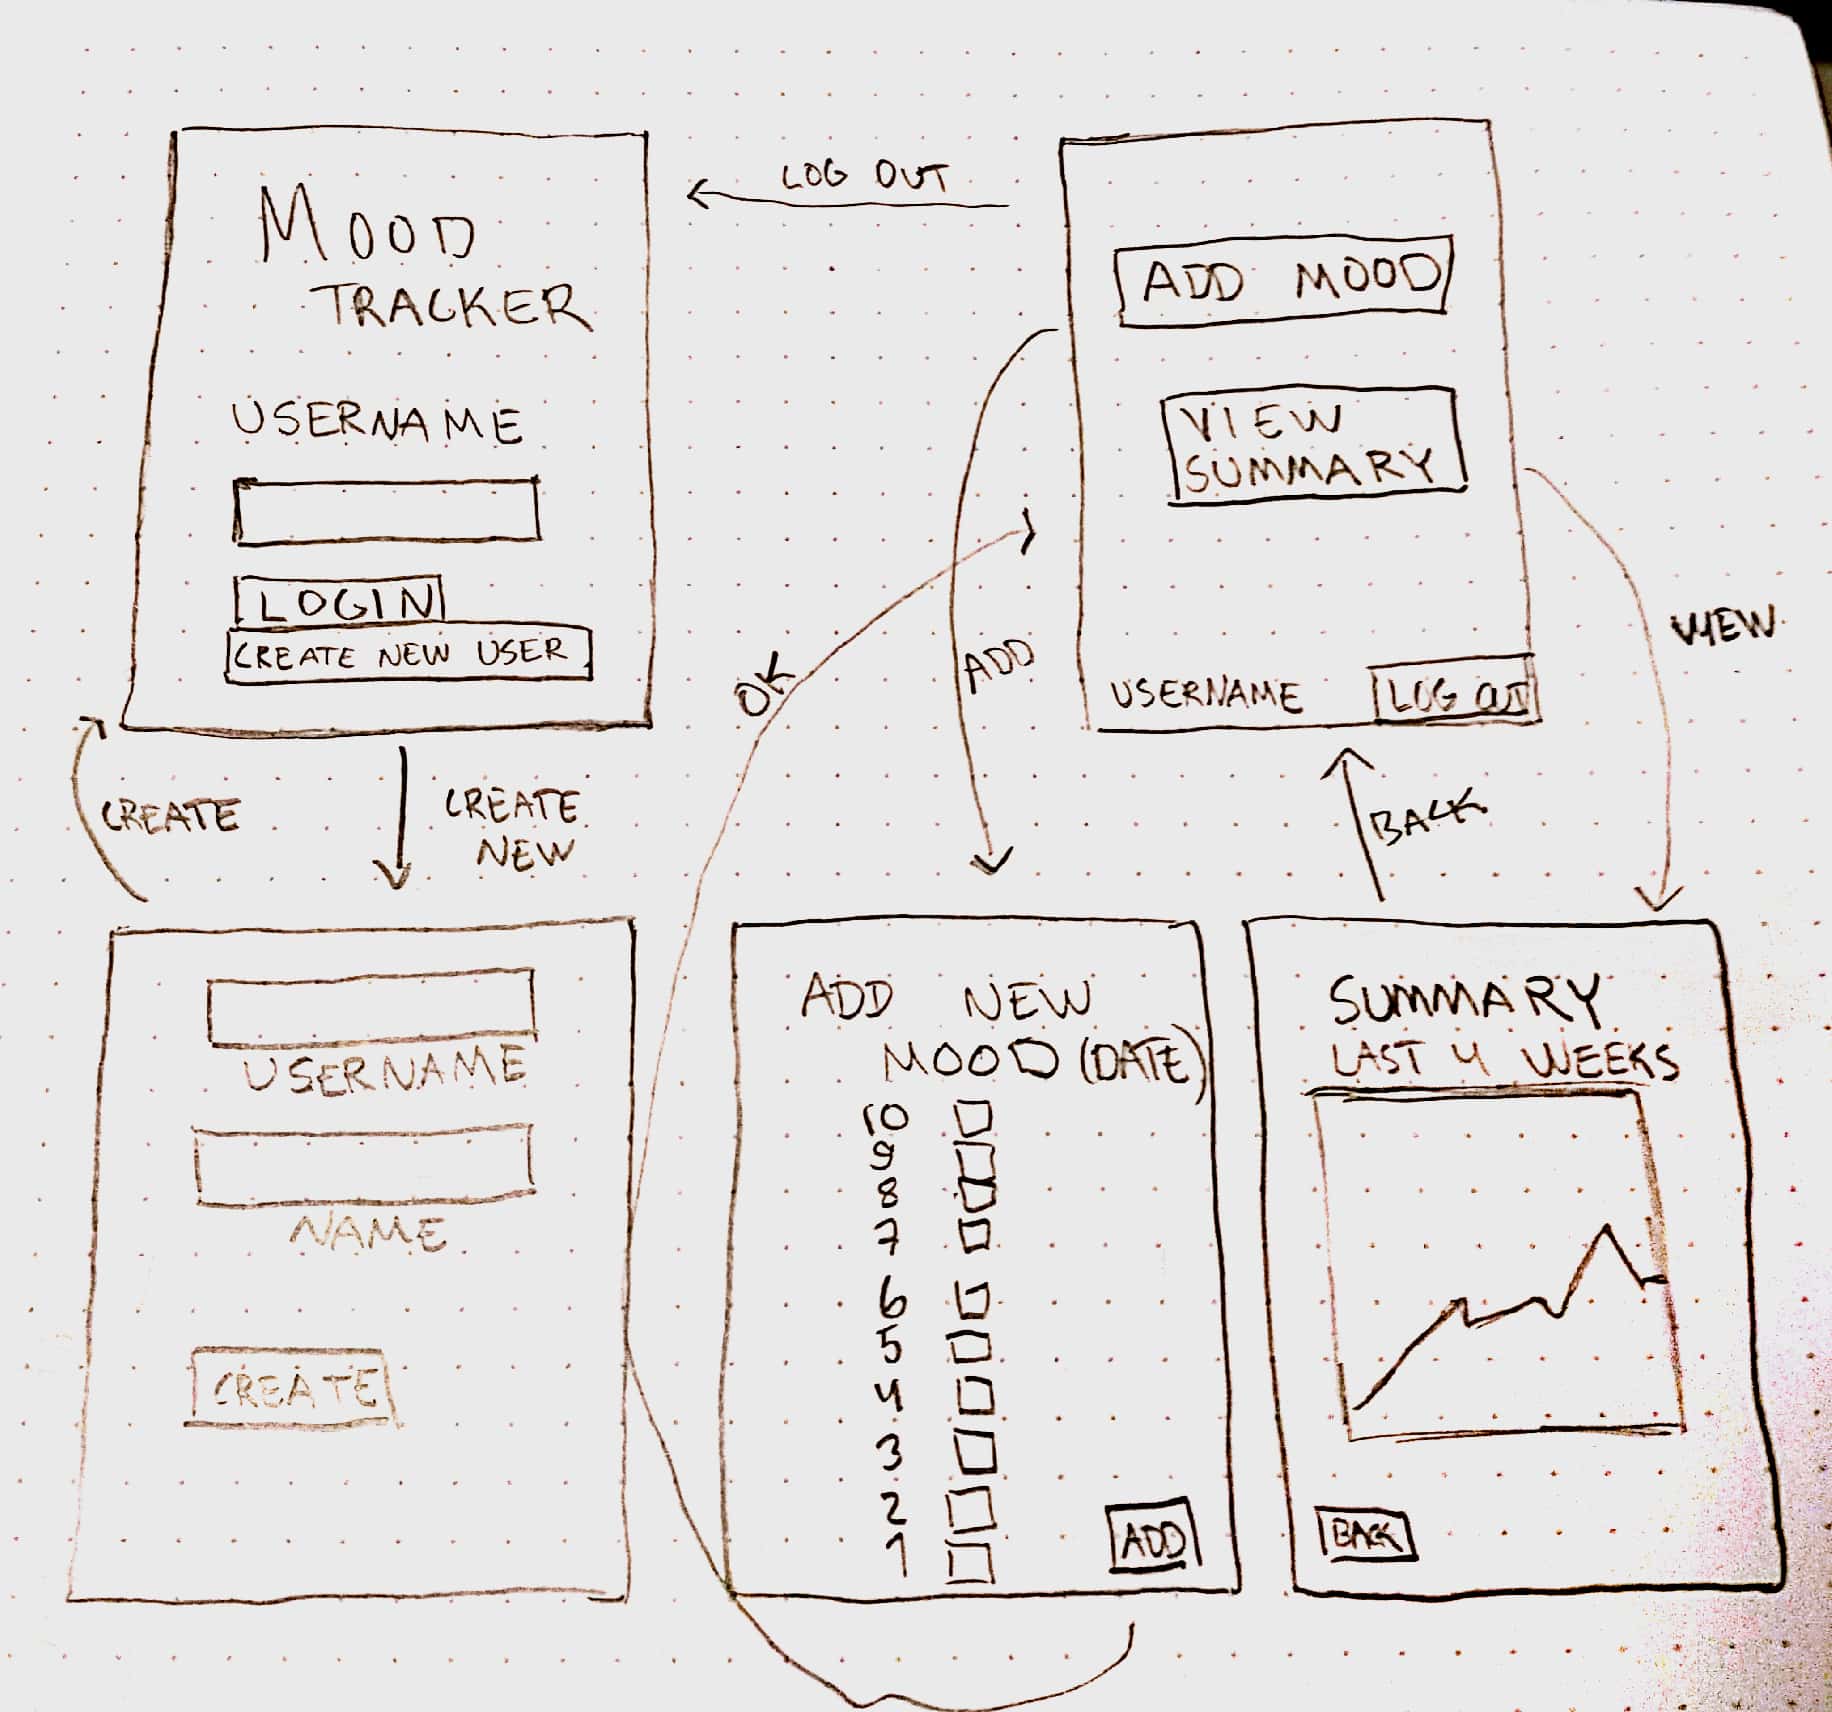 MOOD
TRACKER
USERNAME
LOGIN
CREATE NEW USER
LOG OUT
ADD MOOD
VIEW
SUMMARY
USERNAME
LOG OUT
OK
ADD
VIEW
CREATE
CREATE
NEW
BACK
USERNAME
NAME
CREATE
ADD NEW
MOOD (DATE)
10
9
8
7
6
5
4
3
2
1
ADD
SUMMARY
LAST 4 WEEKS
BACK